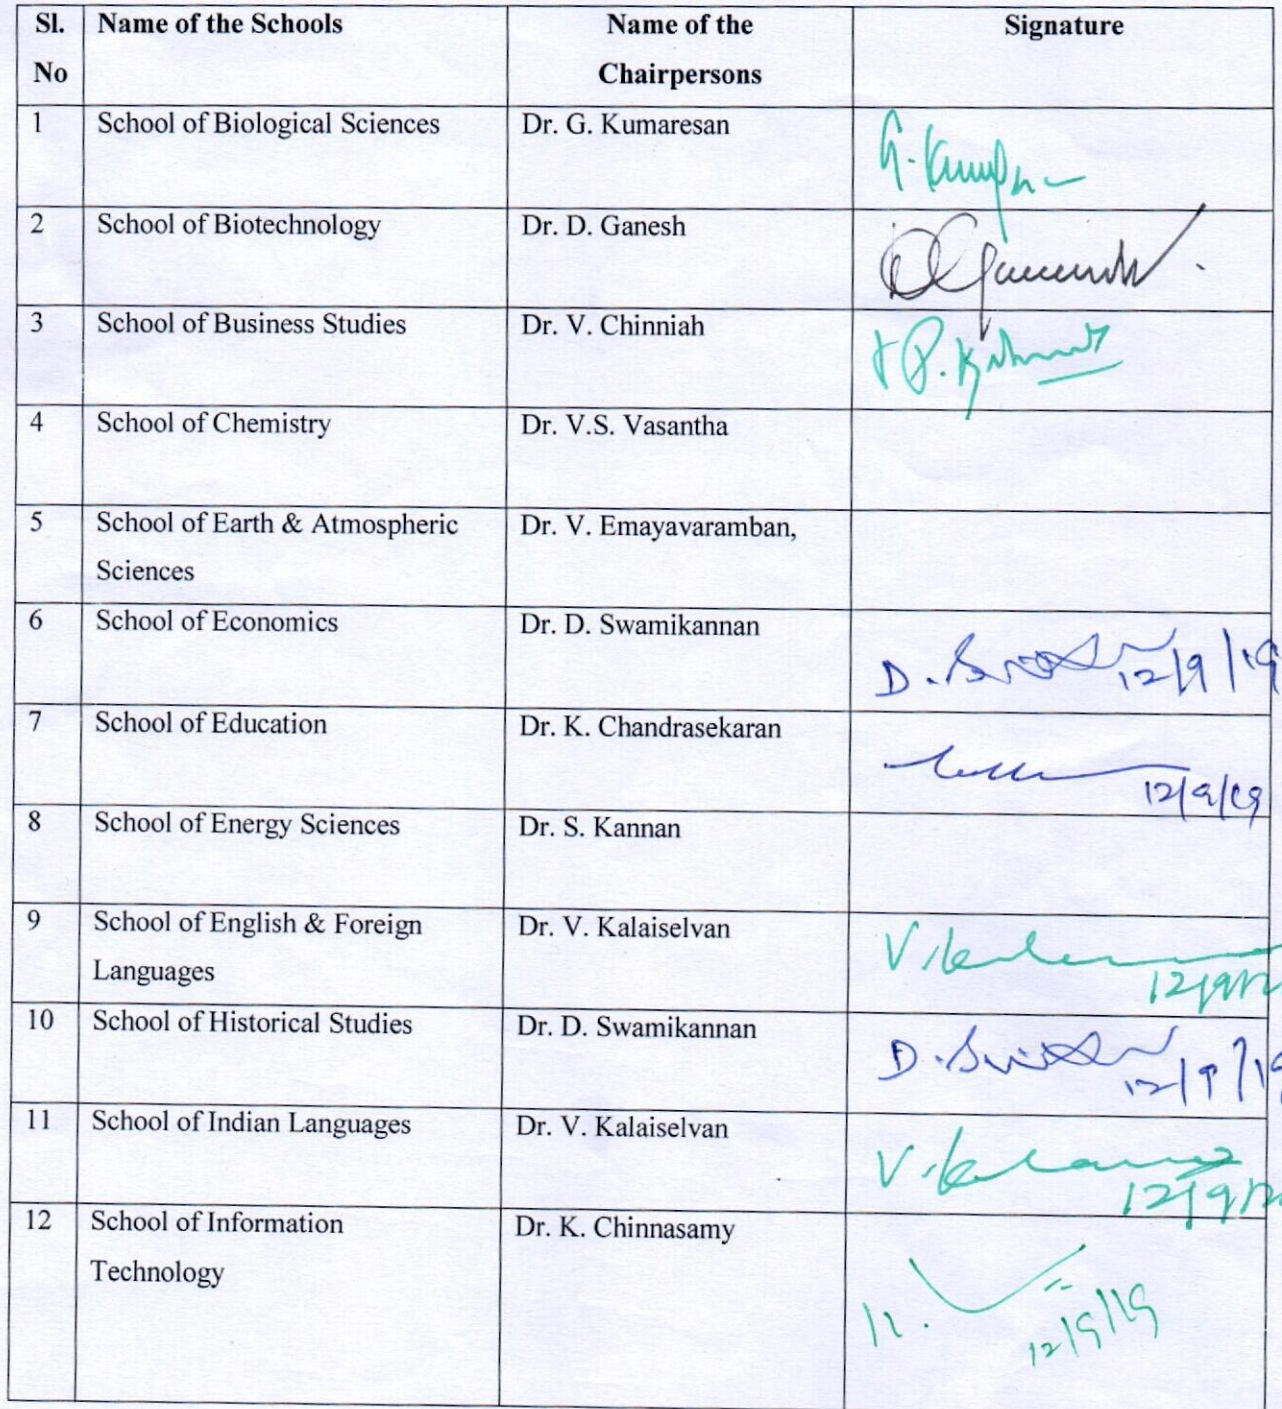 Sl. Name of the Schools Name of the Signature
No Chairpersons
1 School of Biological Sciences Dr. G. Kumaresan
2 School of Biotechnology Dr. D. Ganesh
3 School of Business Studies Dr. V. Chinniah
4 School of Chemistry Dr. V.S. Vasantha
5 School of Earth & Atmospheric Dr. V. Emayavaramban,
Sciences
6 School of Economics Dr. D. Swamikannan
D. 12/9/19
7 School of Education Dr. K. Chandrasekaran
12/9/19
8 School of Energy Sciences Dr. S. Kannan
9 School of English & Foreign Dr. V. Kalaiselvan
Languages
10 School of Historical Studies Dr. D. Swamikannan
D. 12/9/19
11 School of Indian Languages Dr. V. Kalaiselvan
12 School of Information Dr. K. Chinnasamy
Technology
12/9/19